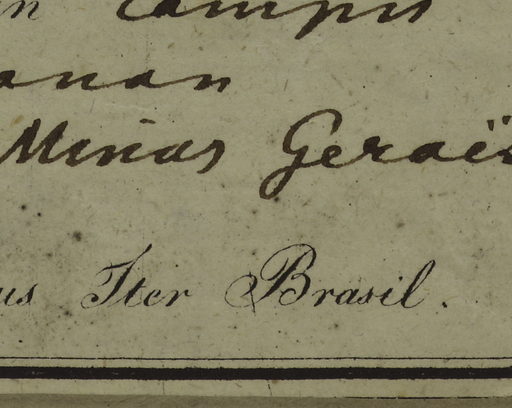 in campis
anan
Minas Geraës
us Iter Brasil.